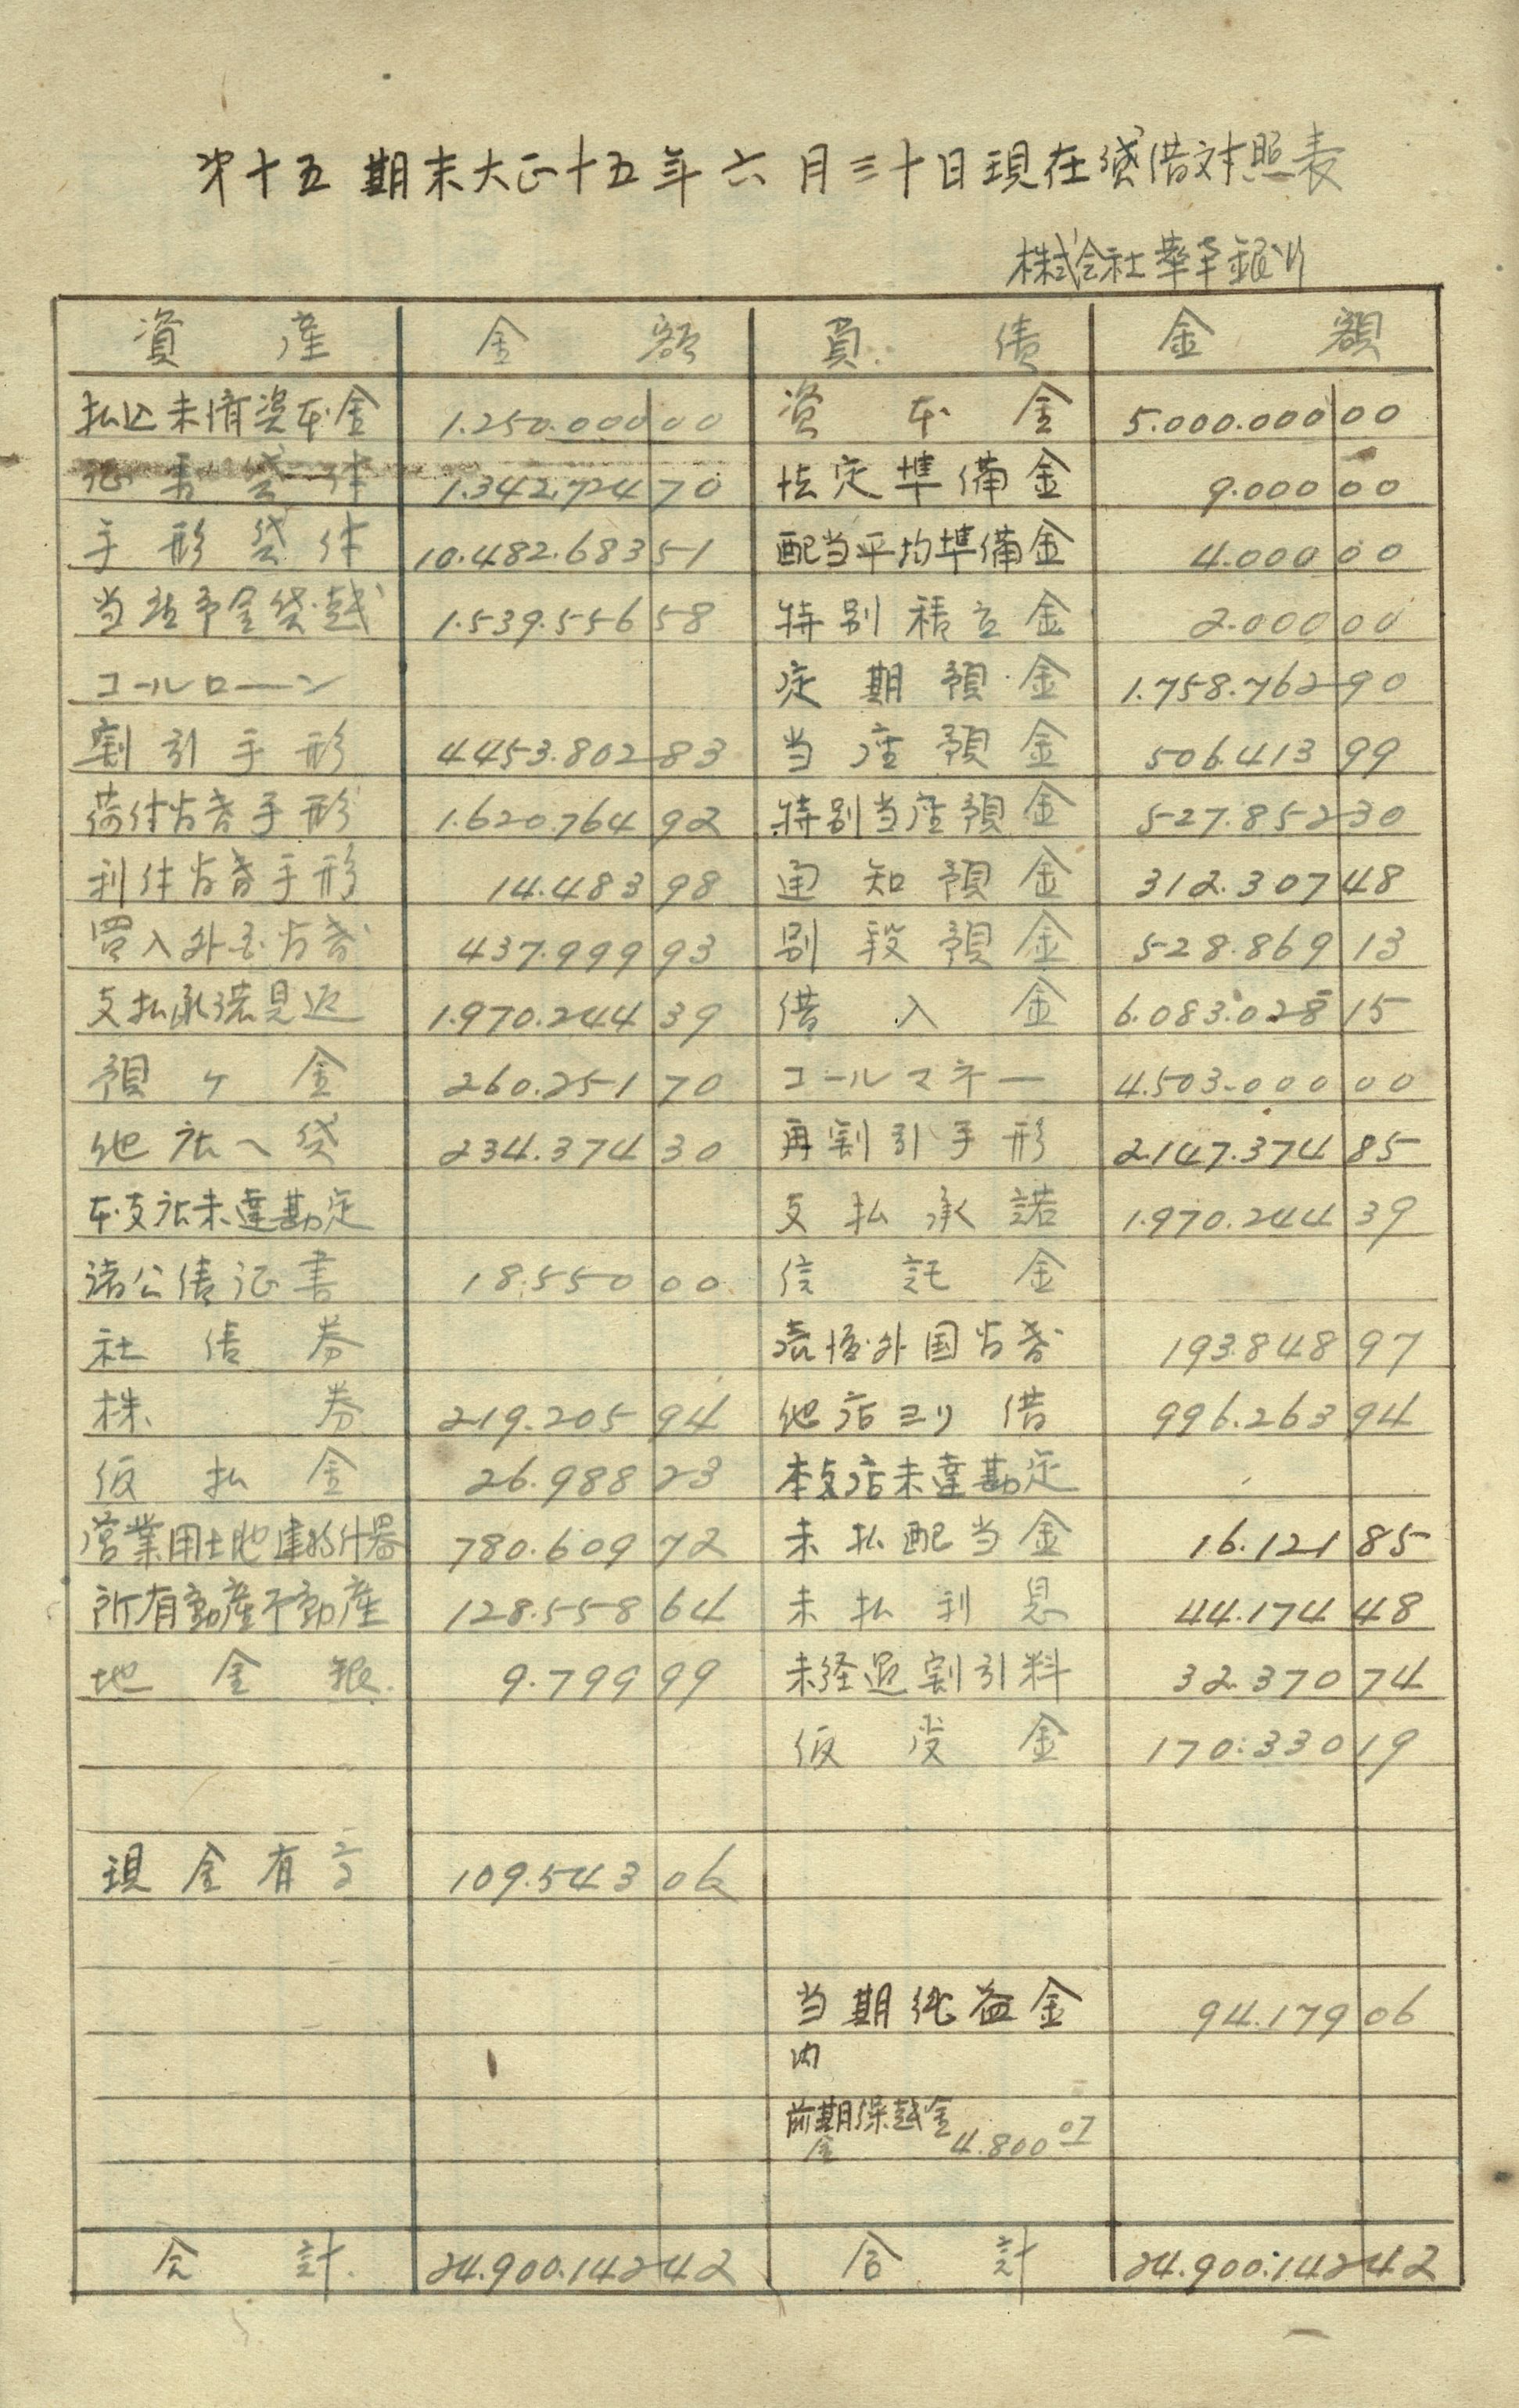 第十五期末大正十五年六月三十日現在貸借対照表
株式会社華南銀行
資産 金額 負債 金額
払込未済資本金 1.250.000 00 資本金 5.000.000 00
証書貸付 1.342.724 70 法定準備金 9.000 00
手形貸付 10.482.683 51 配当平均準備金 4.000 00
当座予金貸越 1.539.556 58 特別積立金 2.000 00
コールローン 定期預金 1.758.762 90
割引手形 4453.802 83 当座預金 506.413 99
荷付為替手形 1.620.764 92 特別当座預金 527.852 30
利付為替手形 14.483 98 通知預金 312.307 48
買入外国為替 437.999 93 別段預金 528.869 13
支払承諾見返 1.970.244 39 借入金 6.083.028 15
預ケ金 260.251 70 コールマネー 4.503.000 00
他店へ貸 234.374 30 再割引手形 2.147.374 85
本支店未達勘定 支払承諾 1.970.244 39
諸公債証書 18.550 00 信託金
社債券 売渡外国為替 193.848 97
株券 219.205 94 他店ヨリ借 996.263 94
仮払金 26.988 23 本支店未達勘定
営業用土地建物什器 780.609 72 未払配当金 16.121 85
所有動産不動産 128.558 64 未払利息 44.174 48
地金銀 9.799 99 未経過割引料 32.370 74
仮受金 170.330 19
現金有高 109.543 06
当期純益金 94.179 06
内
前期繰越金
金 4.800 07
合計 24.900.142 42 合計 24.900.142 42